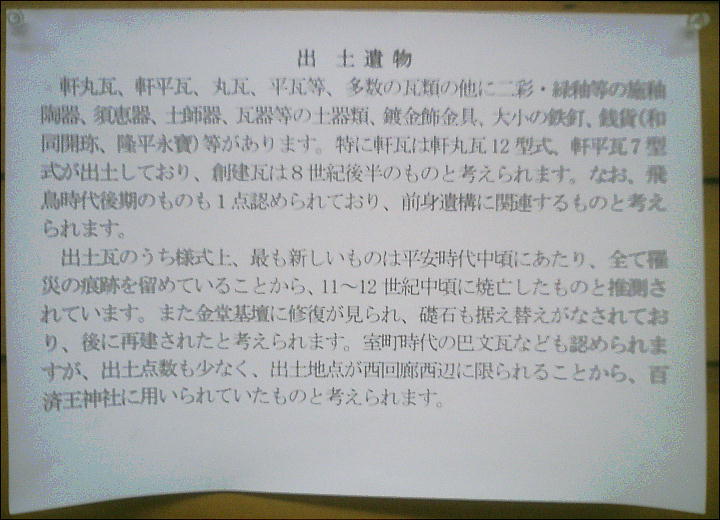 出土遺物
軒丸瓦、軒平瓦、丸瓦、平瓦等、多数の瓦類の他に二彩・緑釉等の施釉
陶器、須恵器、土師器、瓦器等の土器類、鍍金飾金具、大小の鉄釘、銭貨(和
同開珎、隆平永寶)等があります。特に軒瓦は軒丸瓦12型式、軒平瓦7型
式が出土しており、創建瓦は8世紀後半のものと考えられます。なお、飛
鳥時代後期のものも1点認められており、前身遺構に関連するものと考え
られます。
出土瓦のうち様式上、最も新しいものは平安時代中頃にあたり、全て罹
災の痕跡を留めていることから、11~12世紀中頃に焼亡したものと推測さ
れています。また金堂基壇に修復が見られ、礎石も据え替えがなされてお
り、後に再建されたと考えられます。室町時代の巴文瓦なども認められま
すが、出土点数も少なく、出土地点が西回廊西辺に限られることから、百
済王神社に用いられていたものと考えられます。